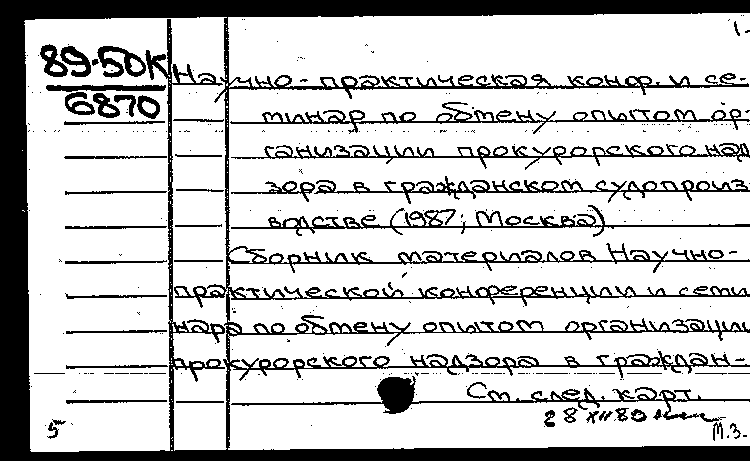 1-
89-50К
6870
Научно-практическая конф. и се-
минар по обмену опытом ор-
ганизации прокурорского над
зора в гражданском судопроиз
водстве (1987; Москва).
Сборник материалов Научно-
практической конференции и семи
нара по обмену опытом организации
прокурорского надзора в граждан-
См. след. карт.
28 XII 89
5
М.З.